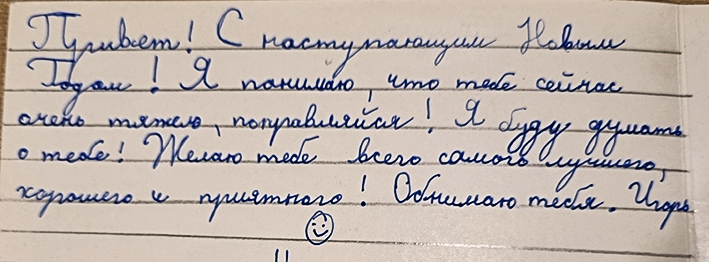 Привет! С наступающим Новым
Годом! Я понимаю, что тебе сейчас
очень тяжело, поправляйся! Я буду думать
о тебе! Желаю тебе всего самого лучшего,
хорошего и приятного! Обнимаю тебя. Игорь